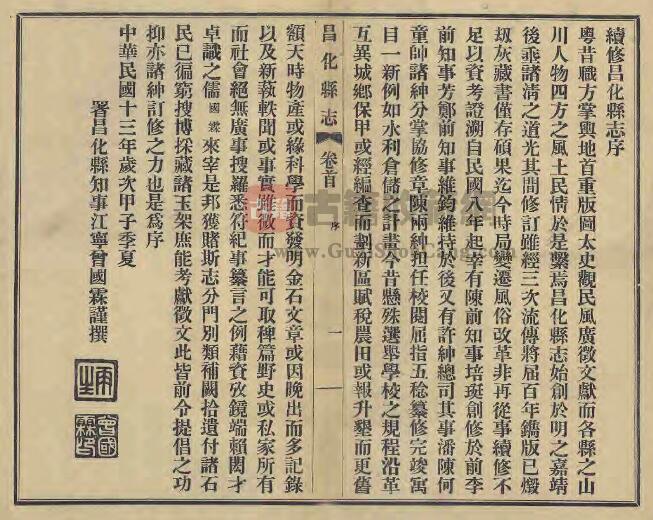 續修昌化縣志序
粵昔職方掌輿地首重版圖太史觀民風廣徵文獻而各縣之山
川人物四方之風土民情於是繫焉昌化縣志始創於明之嘉靖
後乘諸清之道光其間修訂雖經三次流傳將屆百年鐫版已燬
刼灰藏書僅存碩果迄今時局變遷風俗改革非再從事續修不
足以資考證溯自民國八年起幸有陳前知事培珽創修於前李
前知事芳鄭前知事維鈞維持於後又有許紳總司其事潘陳何
童帥諸紳分掌協修章陳兩紳担任校閱屈指五稔纂修完竣寓
目一新例如水利倉儲之計畫今昔懸殊選舉學校之規程沿革
互異城鄉保甲或經編查而劃新區賦稅農田或報升墾而更舊
昌化縣志 卷首 序 一
額天時物產或緣科學而資發明金石文章或因晚出而多記錄
以及新執軼聞或事實難徵而才能可取稗篇野史或私家所有
而社會絕無廣事搜羅悉符紀事纂言之例藉資攷鏡端賴閎才
卓識之儒國霖來宰是邦獲睹斯志分門別類補闕拾遺付諸石
民已徧窮搜博採藏諸玉架庶能考獻徵文此皆前令提倡之功
抑亦諸紳訂修之力也是爲序
中華民國十三年歲次甲子季夏
署昌化縣知事江寧曾國霖謹撰
曾國霖印